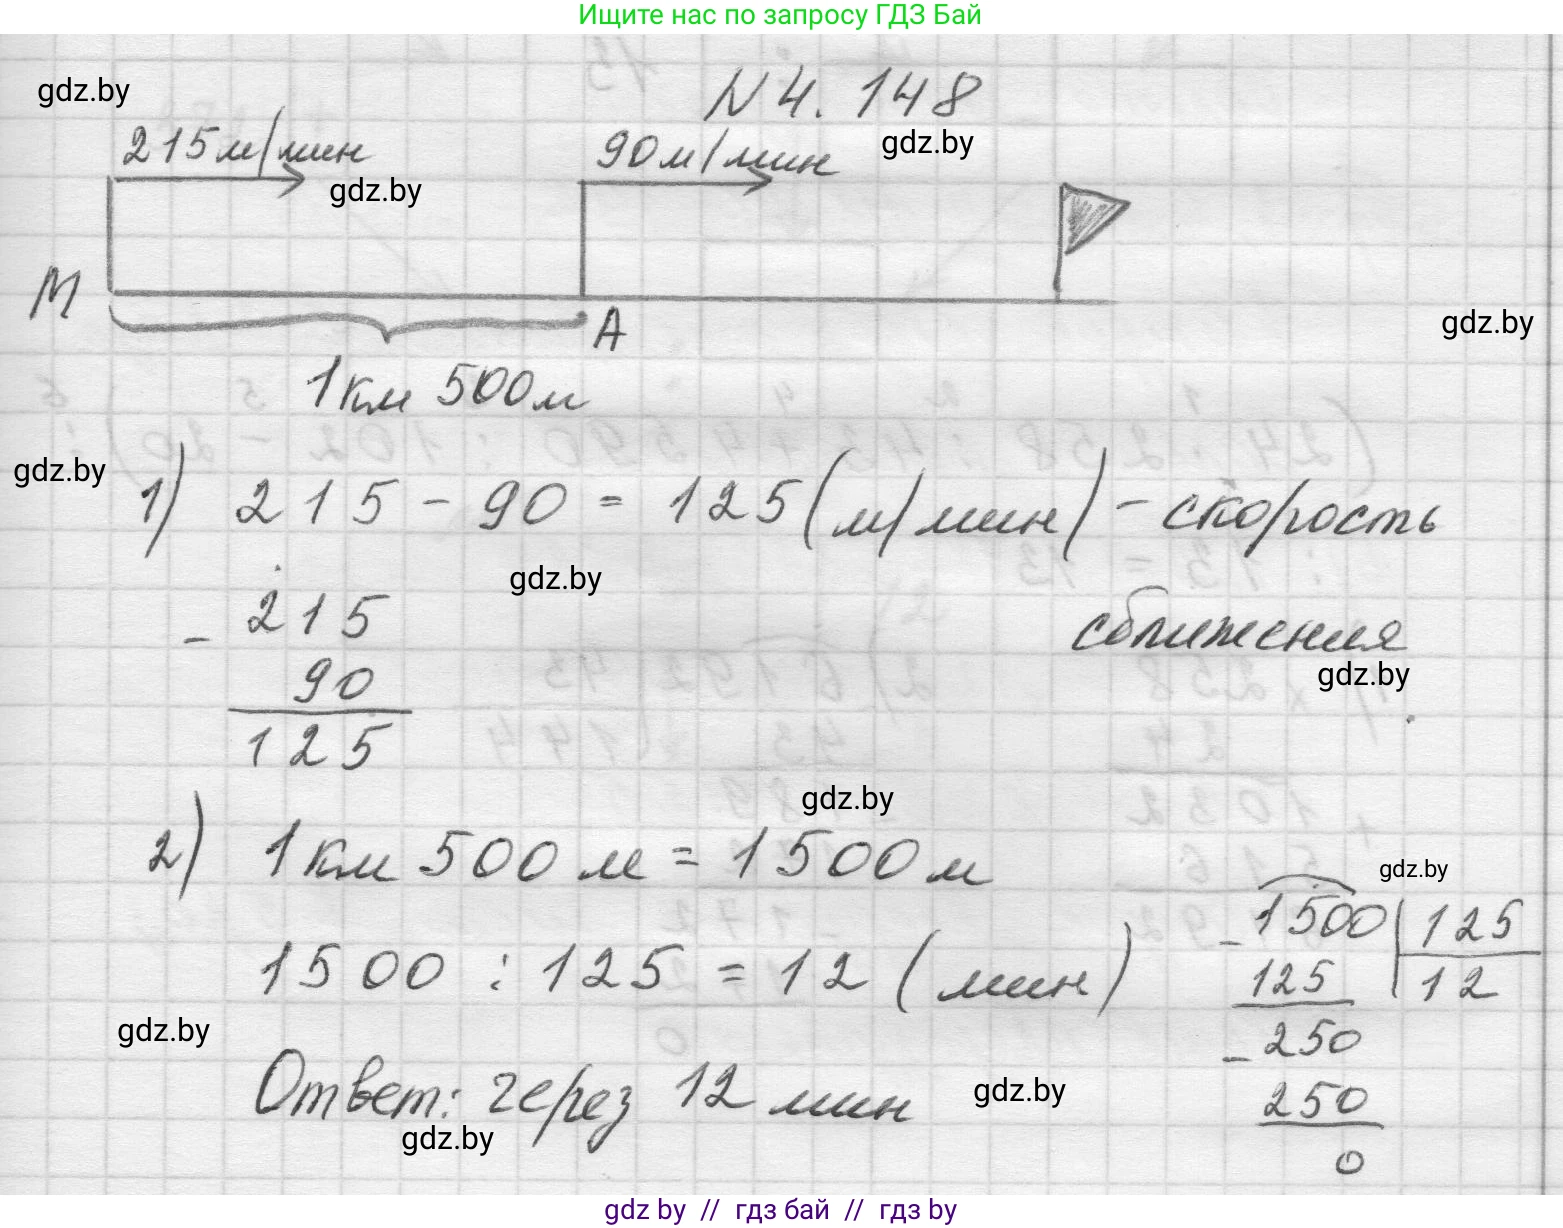 Ищите нас по запросу ГДЗ Бай
N 4. 148
gdz.by
215м/мин
90м/мин
gdz.by
gdz.by
М
А
gdz.by
1км 500м
gdz.by
1) 215 - 90 = 125 (м/мин) - скорость
сближения
gdz.by
- 215
90
125
gdz.by
gdz.by
2) 1 км 500 м = 1500 м
gdz.by
1500 : 125 = 12 (мин)
- 1500 | 125
125 | 12
- 250
250
0
gdz.by
Ответ: через 12 мин
gdz.by
gdz.by
gdz by // гдз бай // гдз by